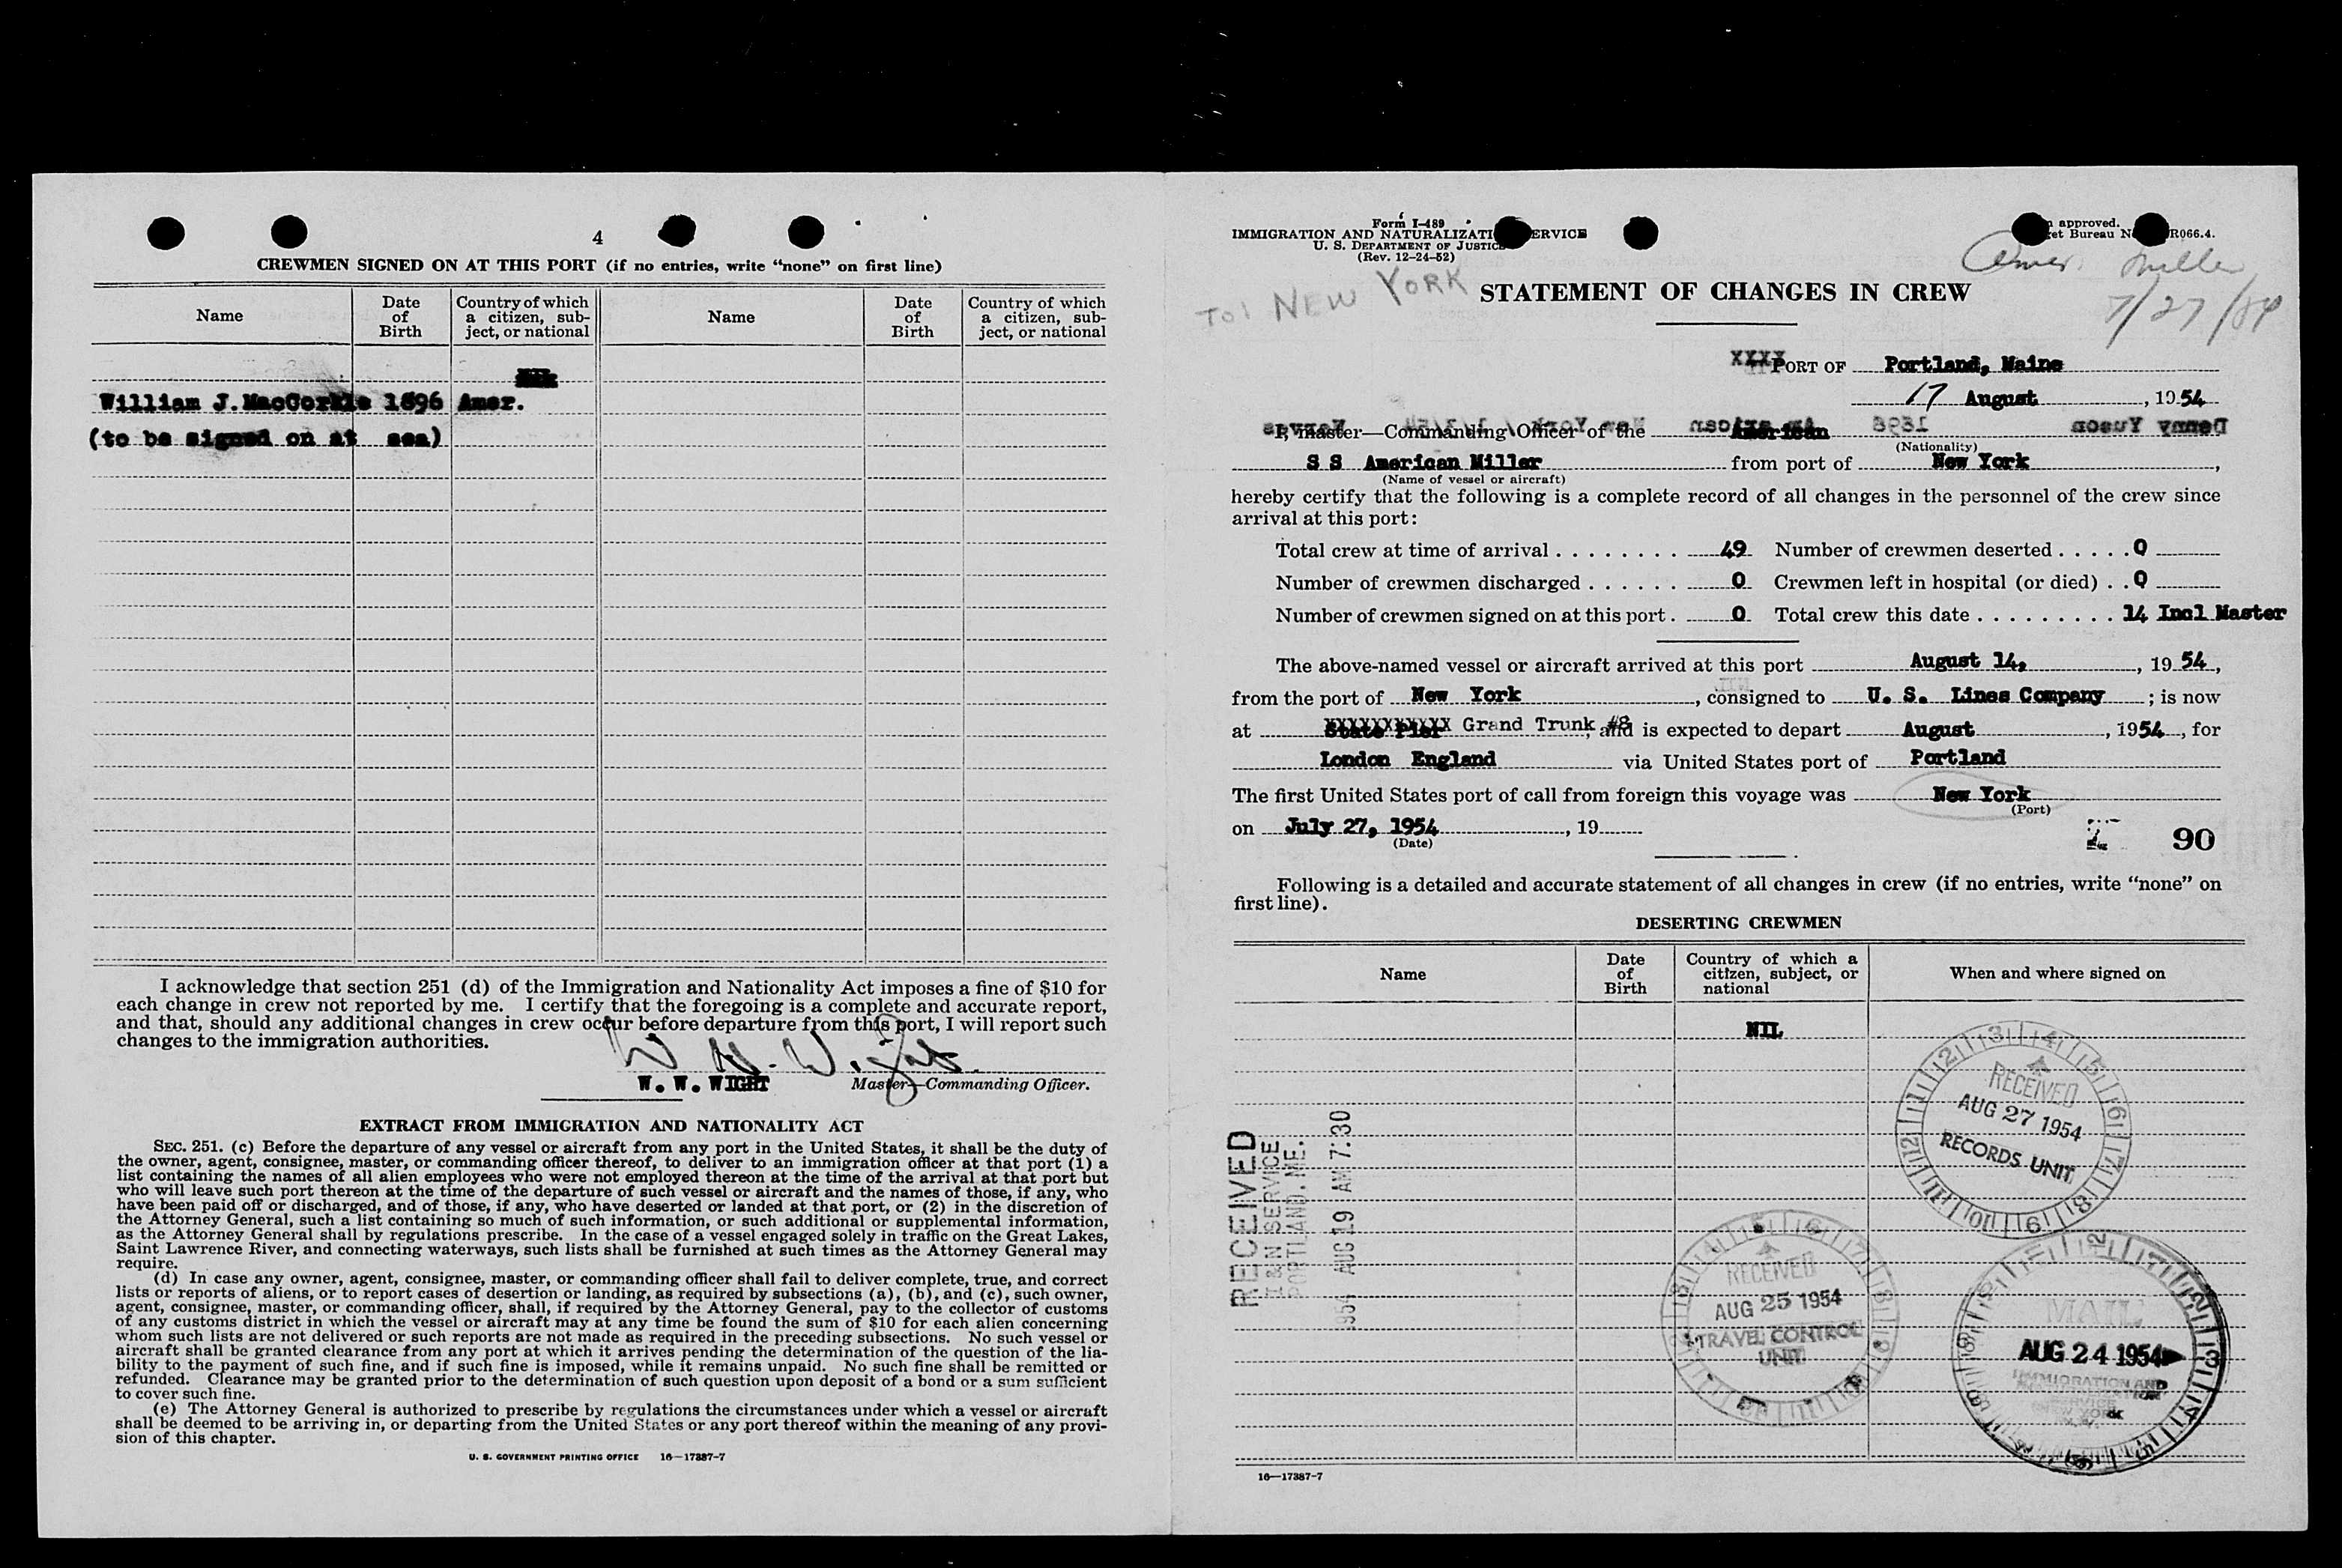 4
CREWMEN SIGNED ON AT THIS PORT (if no entries, write “none” on first line)
Name
Date of Birth
Country of which a citizen, subject, or national
Name
Date of Birth
Country of which a citizen, subject, or national
William J. MacCorkle 1896 Amer.
(to be signed on at sea)
I acknowledge that section 251 (d) of the Immigration and Nationality Act imposes a fine of $10 for
each change in crew not reported by me. I certify that the foregoing is a complete and accurate report,
and that, should any additional changes in crew occur before departure from this port, I will report such
changes to the immigration authorities.
W. W. WIGHT
Master—Commanding Officer.
EXTRACT FROM IMMIGRATION AND NATIONALITY ACT
SEC. 251. (c) Before the departure of any vessel or aircraft from any port in the United States, it shall be the duty of
the owner, agent, consignee, master, or commanding officer thereof, to deliver to an immigration officer at that port (1) a
list containing the names of all alien employees who were not employed thereon at the time of the arrival at that port but
who will leave such port thereon at the time of the departure of such vessel or aircraft and the names of those, if any, who
have been paid off or discharged, and of those, if any, who have deserted or landed at that port, or (2) in the discretion of
the Attorney General, such a list containing so much of such information, or such additional or supplemental information,
as the Attorney General shall by regulations prescribe. In the case of a vessel engaged solely in traffic on the Great Lakes,
Saint Lawrence River, and connecting waterways, such lists shall be furnished at such times as the Attorney General may
require.
(d) In case any owner, agent, consignee, master, or commanding officer shall fail to deliver complete, true, and correct
lists or reports of aliens, or to report cases of desertion or landing, as required by subsections (a), (b), and (c), such owner,
agent, consignee, master, or commanding officer, shall, if required by the Attorney General, pay to the collector of customs
of any customs district in which the vessel or aircraft may at any time be found the sum of $10 for each alien concerning
whom such lists are not delivered or such reports are not made as required in the preceding subsections. No such vessel or
aircraft shall be granted clearance from any port at which it arrives pending the determination of the question of the lia-
bility to the payment of such fine, and if such fine is imposed, while it remains unpaid. No such fine shall be remitted or
refunded. Clearance may be granted prior to the determination of such question upon deposit of a bond or a sum sufficient
to cover such fine.
(e) The Attorney General is authorized to prescribe by regulations the circumstances under which a vessel or aircraft
shall be deemed to be arriving in, or departing from the United States or any port thereof within the meaning of any provi-
sion of this chapter.
U. S. GOVERNMENT PRINTING OFFICE 16—17387-7
Form I-489
IMMIGRATION AND NATURALIZATI ERVICE
U. S. DEPARTMENT OF JUSTICE
(Rev. 12-24-52)
approved.
et Bureau N R066.4.
Amer. Miller
7/27/54
TO: NEW YORK
STATEMENT OF CHANGES IN CREW
XXXX PORT OF Portland, Maine
17 August, 1954
I, Master—Commanding Officer of the American
(Nationality)
S S American Miller from port of New York,
(Name of vessel or aircraft)
hereby certify that the following is a complete record of all changes in the personnel of the crew since
arrival at this port:
Total crew at time of arrival 49 Number of crewmen deserted 0
Number of crewmen discharged 0 Crewmen left in hospital (or died) 0
Number of crewmen signed on at this port 0 Total crew this date 14 Incl Master
The above-named vessel or aircraft arrived at this port August 14, 1954,
from the port of New York, consigned to U. S. Lines Company; is now
at XXXXXXXXXXX Grand Trunk #8, and is expected to depart August, 1954, for
London England via United States port of Portland
The first United States port of call from foreign this voyage was New York
(Port)
on July 27, 1954, 19
(Date)
90
Following is a detailed and accurate statement of all changes in crew (if no entries, write “none” on
first line).
DESERTING CREWMEN
Name
Date of Birth
Country of which a citizen, subject, or national
When and where signed on
NIL
RECEIVED
AUG 27 1954
RECORDS UNIT
RECEIVED
I & N SERVICE
PORTLAND, ME.
1954 AUG 19 AM 7:30
RECEIVED
AUG 25 1954
TRAVEL CONTROL
UNIT
MAIL
AUG 24 1954
IMMIGRATION AND
NATURALIZATION
SERVICE
NEW YORK
16—17387-7